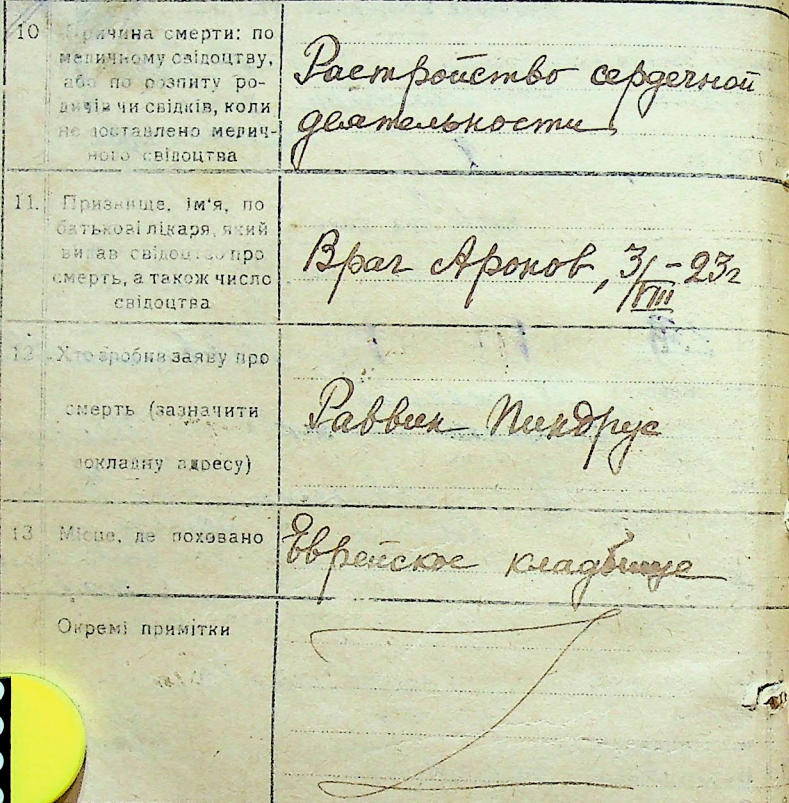 10 Причина смерти: по
медичному свідоцтву,
або по розпиту ро-
дичів чи свідків, коли
не доставлено медич-
ного свідоцтва
Растройство сердечной
деятельности
11. Призвище, ім'я, по
батькові лікаря, який
видав свідоцтво про
смерть, а також число
свідоцтва
Врач Аронов, 3/VIII - 23 г
12 Хто зробив заяву про
смерть (зазначити
докладну адресу)
Раввин Пиндрус
13 Місце, де поховано
Еврейское кладбище
Окремі примітки